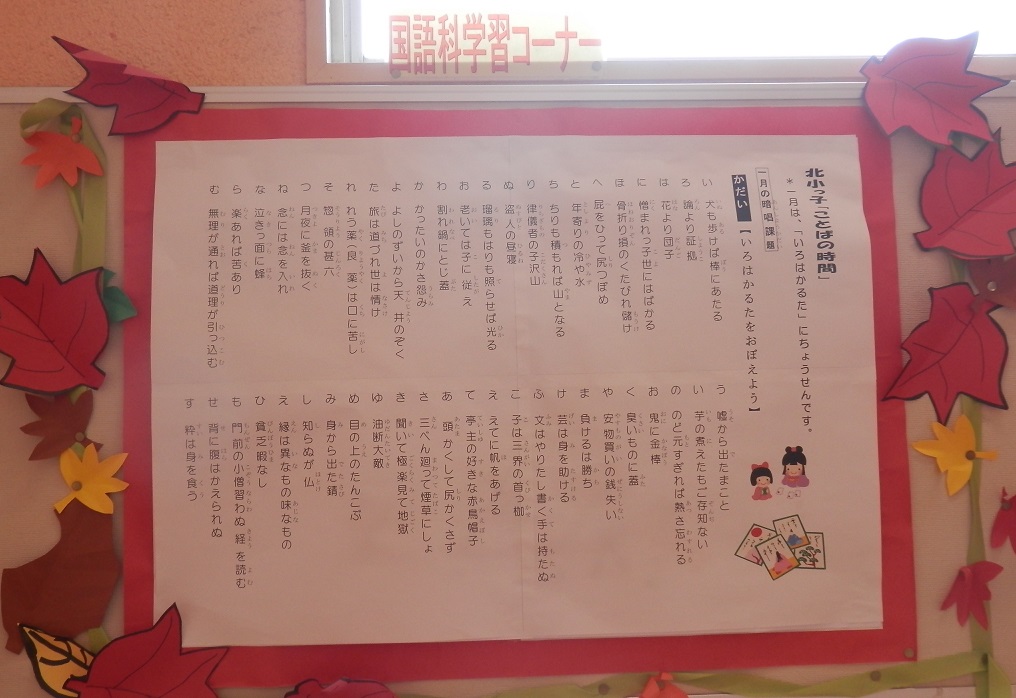 国語科学習コーナー
北小っ子「ことばの時間」
＊一月は、「いろはかるた」にちょうせんです。
一月の暗唱課題
かだい【いろはかるたをおぼえよう】
い 犬も歩けば棒にあたる
ろ 論より証拠
は 花より団子
に 憎まれっ子世にはばかる
ほ 骨折り損のくたびれ儲け
へ 屁をひって尻つぼめ
と 年寄りの冷や水
ち ちりも積もれば山となる
り 律儀者の子沢山
ぬ 盗人の昼寝
る 瑠璃もはりも照らせば光る
お 老いては子に従え
わ 割れ鍋にとじ蓋
か かったいのかさ怨み
よ よしのずいから天井のぞく
た 旅は道づれ世は情け
れ れう薬（良薬）は口に苦し
そ 惣領の甚六
つ 月夜に釜を抜く
ね 念には念を入れ
な 泣きっ面に蜂
ら 楽あれば苦あり
む 無理が通れば道理が引っ込む
う 嘘から出たまこと
い 芋の煮えたもご存知ない
の のど元すぎれば熱さ忘れる
お 鬼に金棒
く 臭いものに蓋
や 安物買いの銭失い
ま 負けるは勝ち
け 芸は身を助ける
ふ 文はやりたし書く手は持たぬ
こ 子は三界の首っ枷
え えてに帆をあげる
て 亭主の好きな赤烏帽子
あ 頭かくして尻かくさず
さ 三べん廻って煙草にしょ
き 聞いて極楽見て地獄
ゆ 油断大敵
め 目の上のたんこぶ
み 身から出た錆
し 知らぬが仏
え 縁は異なもの味なもの
ひ 貧乏暇なし
も 門前の小僧習わぬ経を読む
せ 背に腹はかえられぬ
す 粋は身を食う